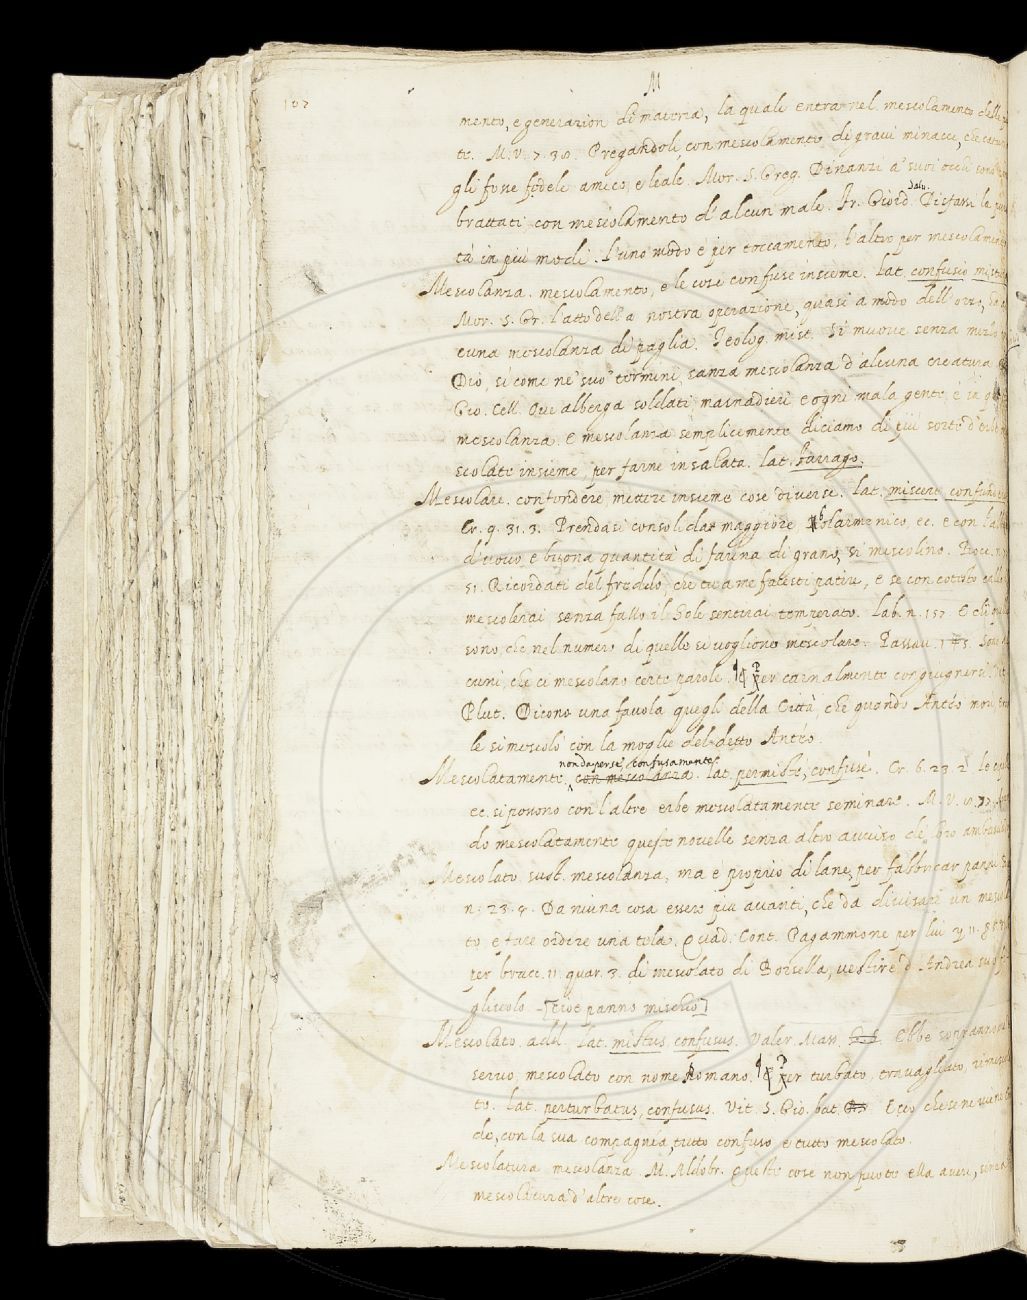 102
M
mento, e generazion di materia, la quale entra nel mescolamento
te. M. V. 7. 38. Pregandoli, con mescolamento di gravi minacce, che
gli fosse fedele amico, e leale. Mor. S. Greg. Dinanzi a' suoi occhi
brattati con mescolamento d'alcun male. Fr. Giord. Salv. Disfassi la
tà in più modi. L'uno modo è per toccamento, l'altro per mescolamen
Mescolanza. mescolamento, e le cose confuse insieme. lat. confusio
Mor. S. Gr. l'atto della nostra operazione, quasi a modo dell'orzo,
cuna mescolanza di paglia. Teolog. mist. Si muove senza mezzo
Dio, sì come ne' suo' termini, sanza mescolanza d'alcuna creatura
Gio. Cell. Ove alberga soldati, masnadieri e ogni mala gente, è
mescolanza. E mescolanza semplicemente diciamo di più sorte d'
scolate insieme, per farne insalata. lat. farrago.
Mescolare. confondere, mettere insieme cose diverse. lat. miscere
Cr. 9. 31. 3. Prendasi consolida maggiore, bolarmenico, ec. e con
d'uovo e buona quantità di farina di grano, si mescolino.
51. Ricordati del freddo, che tu a me facesti patire, e se con cotesto
mescolerai senza fallo il Sole sentirai temperato. Lab. n. 157. E
sono, che nel numero di quelle si vogliono mescolare. Passav.
cuni, che ci mescolano certe parole. ¶ Per carnalmente congiugnersi.
Plut. Dicono una favola quegli della Città, che quando Anteo
le si mescolò con la moglie del detto Anteo.
non da perse, confusamente.
Mescolatamente. con mescolanza. lat. permiste, confuse. Cr. 6. 23. 2.
ec. si possono con l'altre erbe mescolatamente seminare. M. V.
do mescolatamente queste novelle senza altro avviso de' loro
Mescolato sust. mescolanza, ma è proprio di lane, per fabbricar panni.
n. 23. 8. Da niuna cosa essere più avanti, che da divisare un
to, e fare ordire una tela. Quad. Cont. Pagammone per lui
per brace. 11. quar. 3. di mescolato di Borsella, vestire d'Andrea
gliuolo [cioè panno mischio]
Mescolato. add. lat. mistus, confusus. Valer. Mass. Ebbe
servo, mescolato con nome Romano. ¶ Per turbato, travagliato,
to. lat. perturbatus, confusus. Vit. S. Gio. bat. Ecco che se ne
do, con la sua compagnia, tutto confuso, e tutto mescolato.
Mescolatura. mescolanza. M. Aldobr. Queste cose non puote ella avere,
mescolatura d'altre cose.